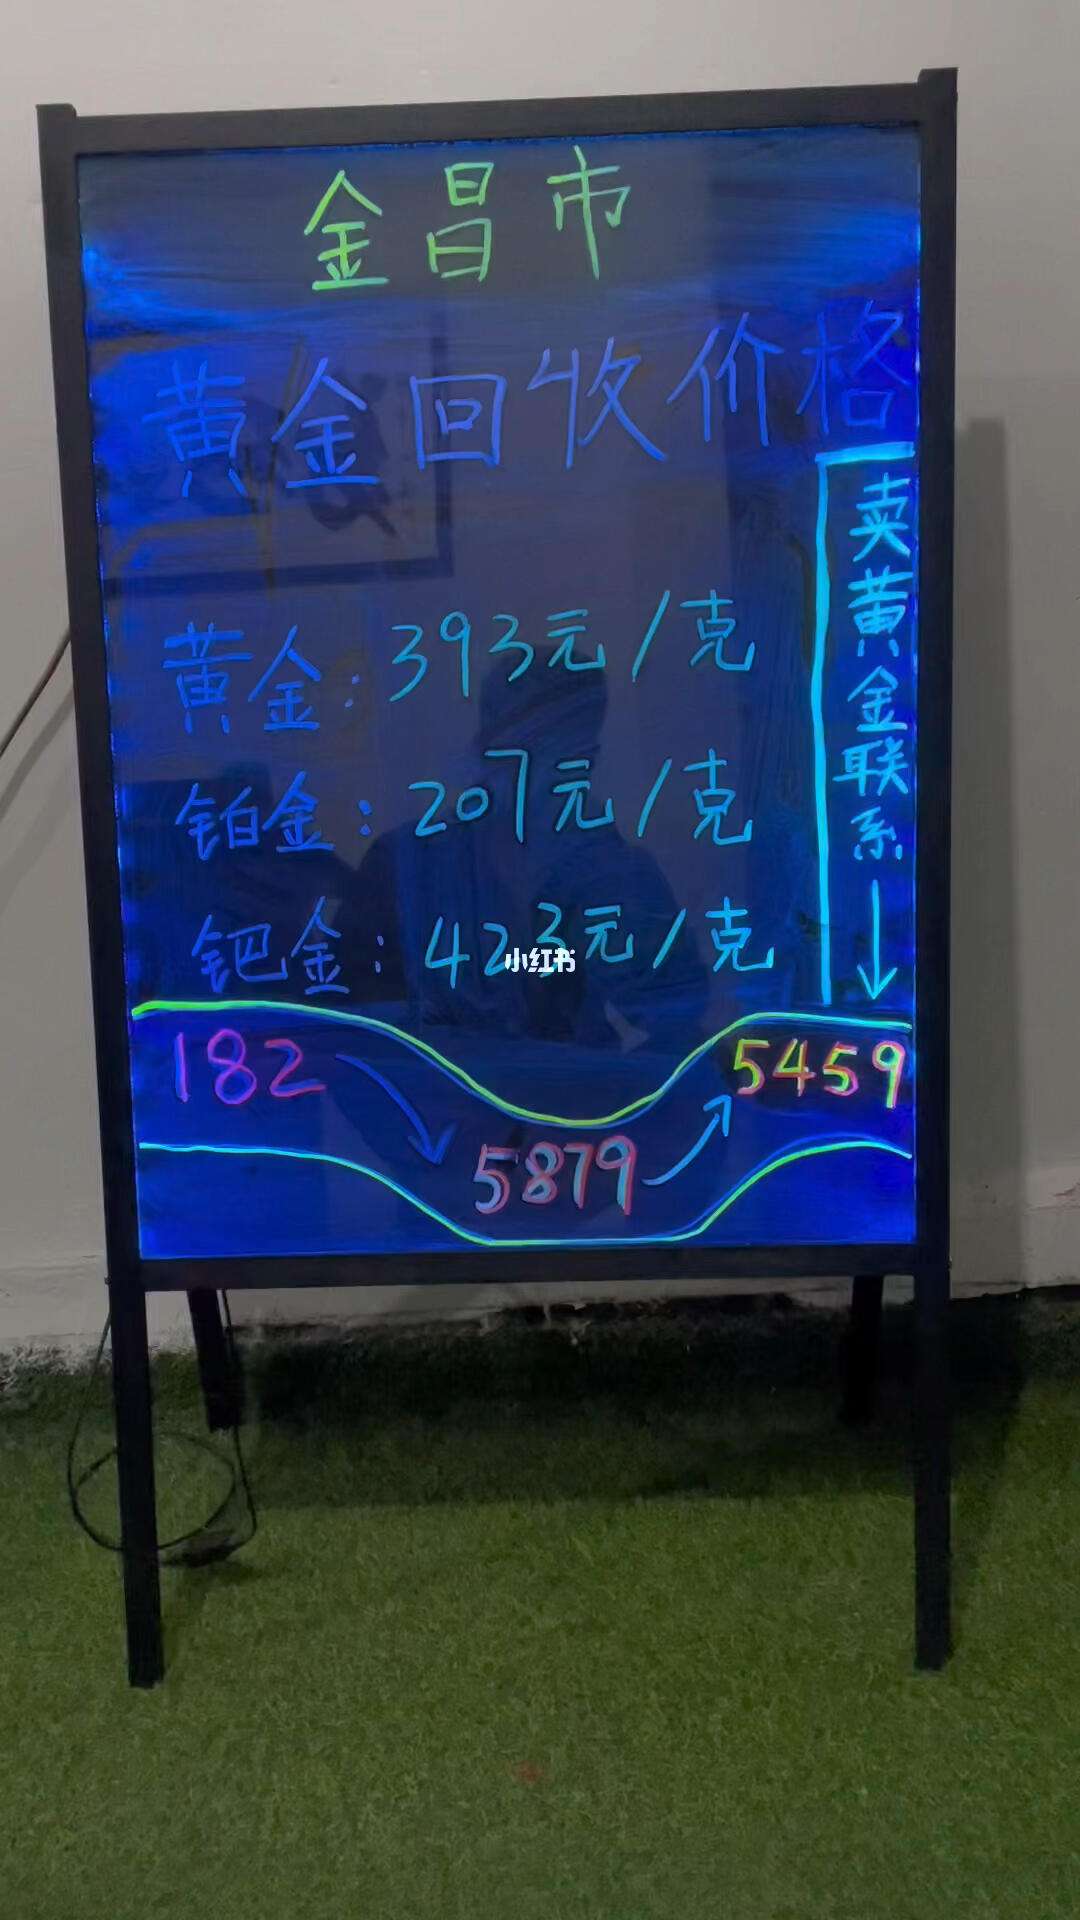 金昌市
黄金回收价格
黄金：393元/克
铂金：207元/克
钯金：423元/克
卖黄金联系
182
5879
5459
小红书